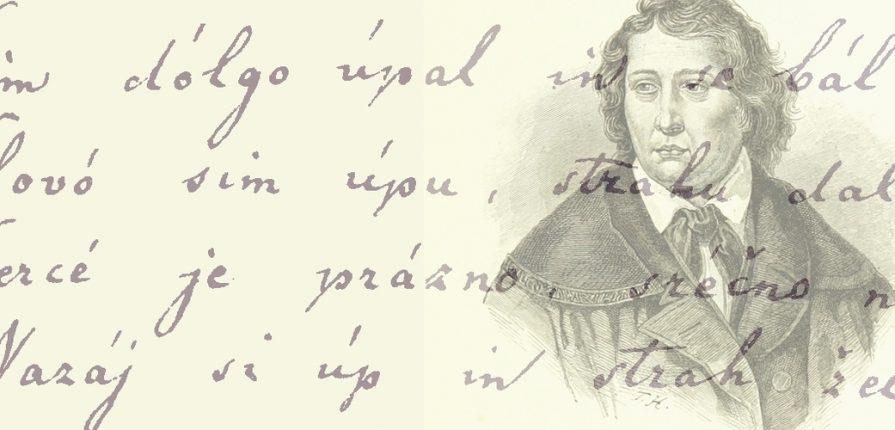 im dólgo úpal in se bál
lovó sim úpu, strahu dal
ercé je prázno, sréčno n
Nazáj si úp in strah že